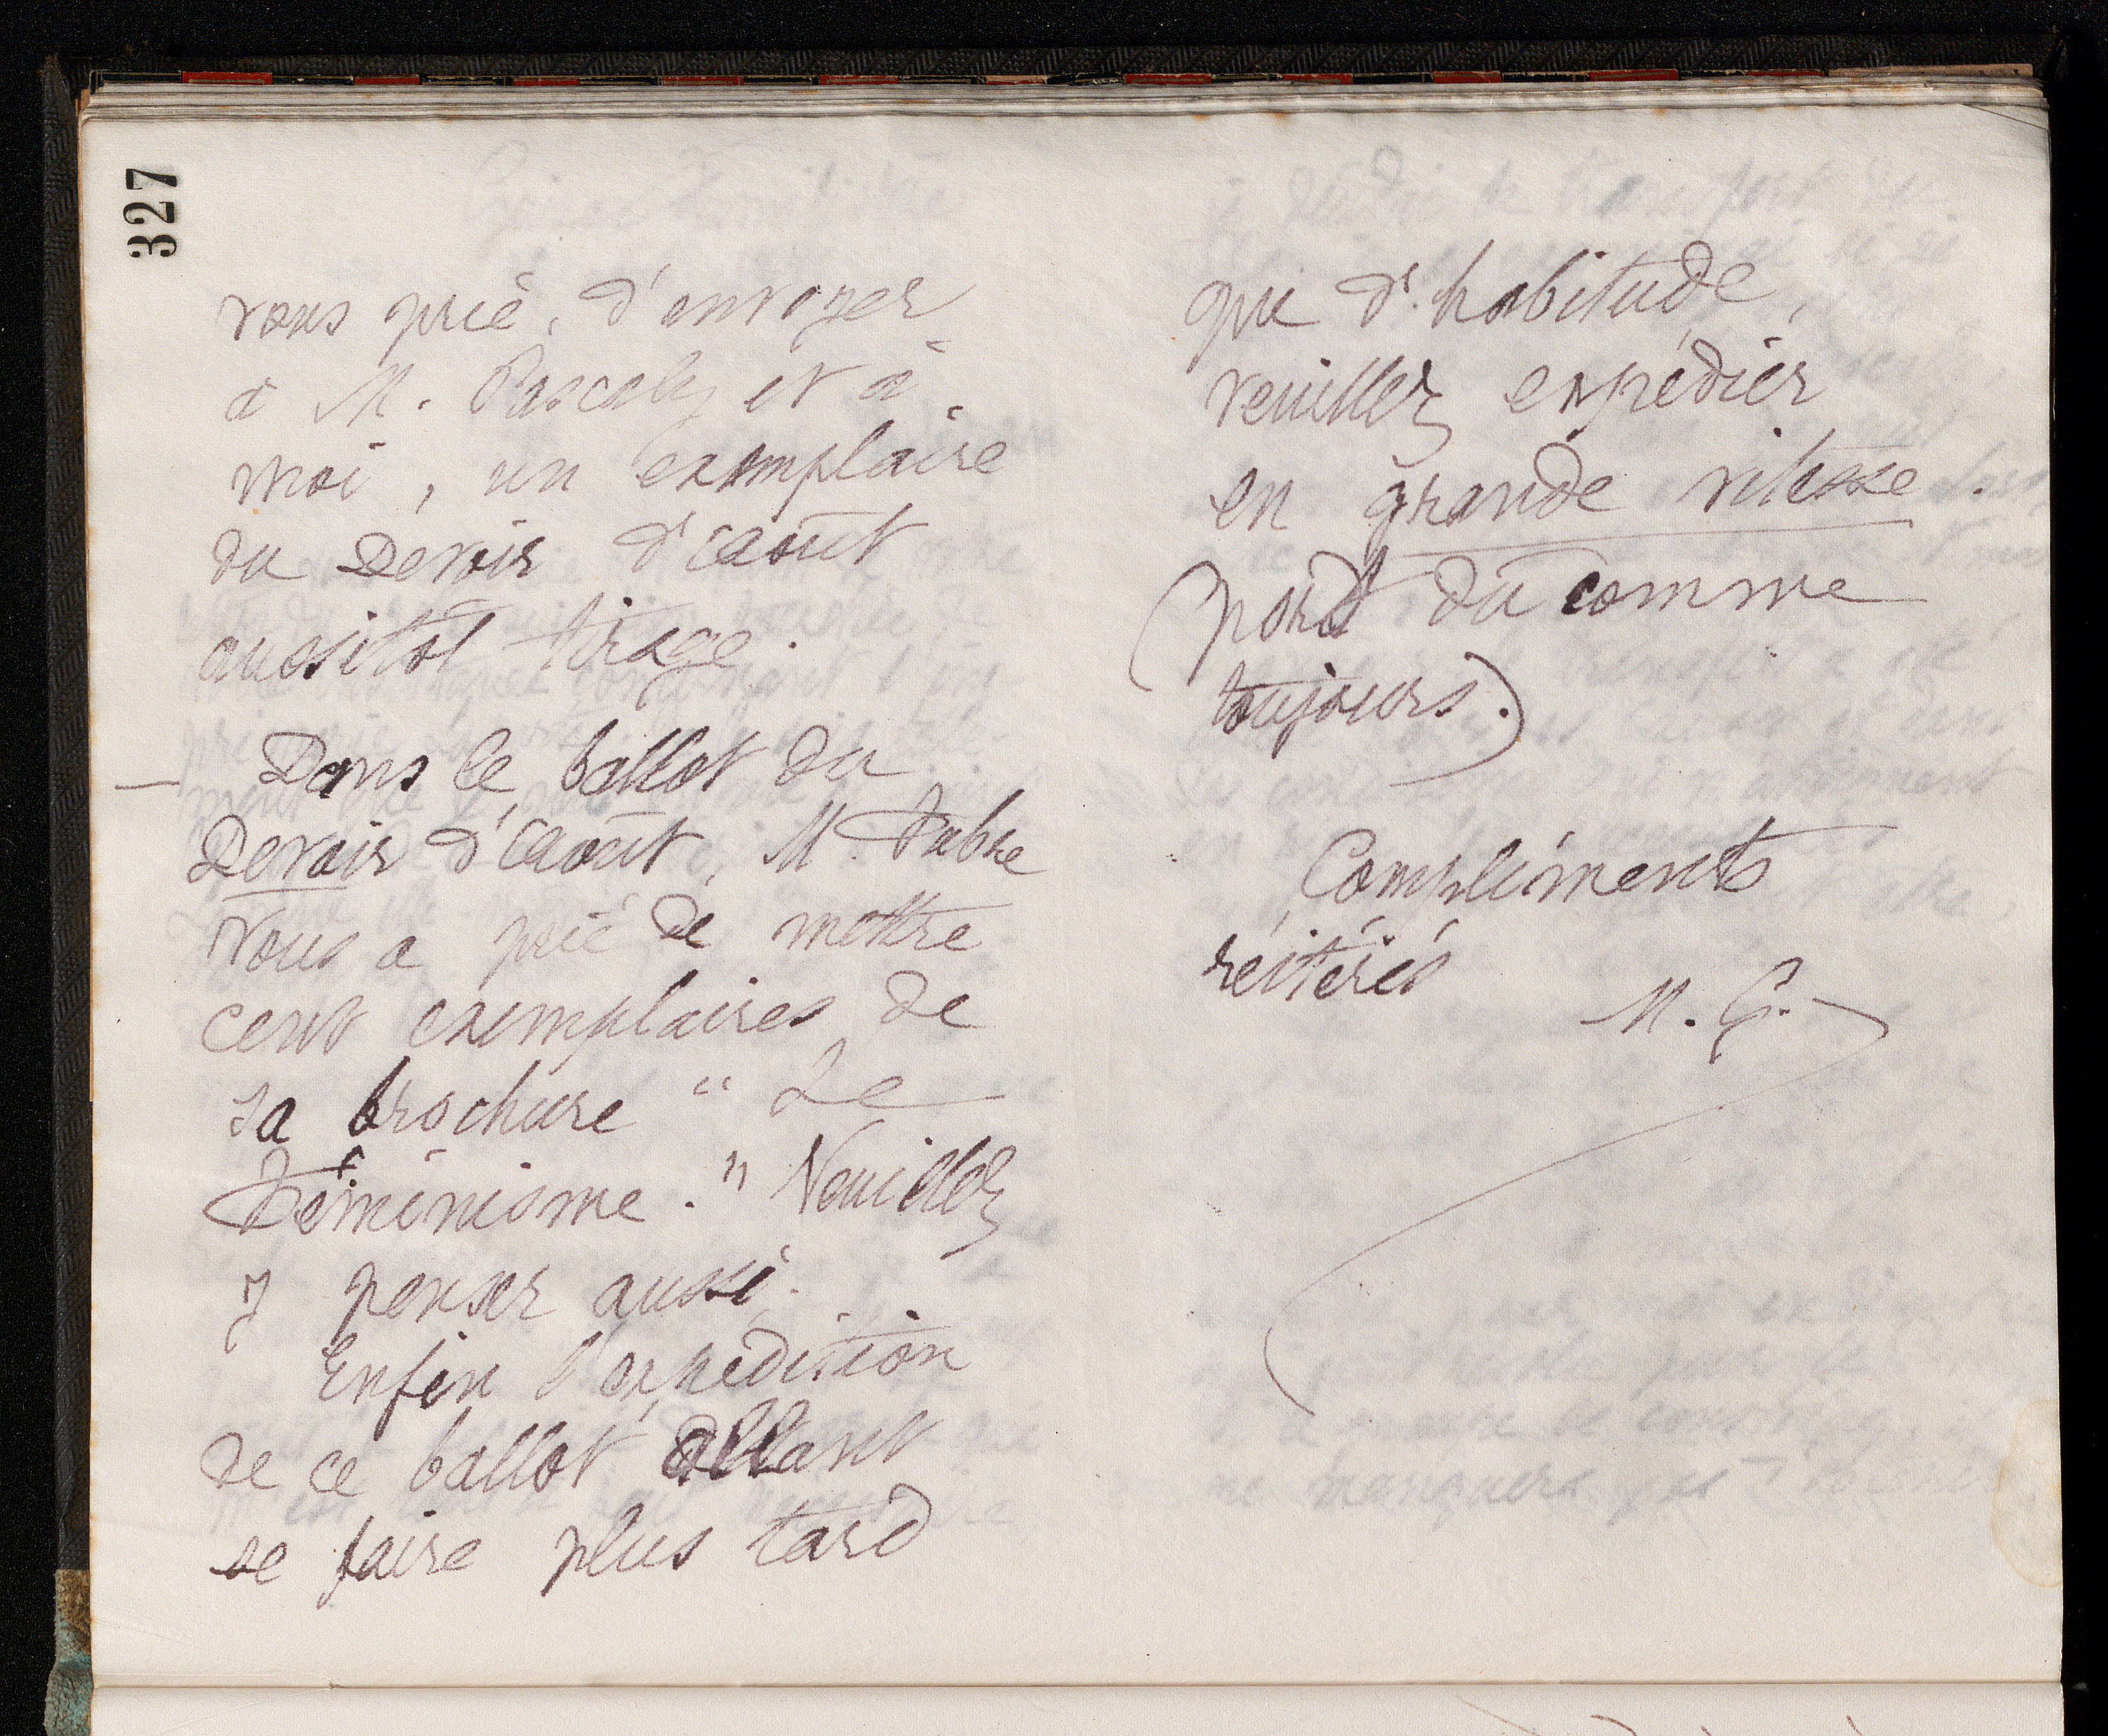 327
vous prie, d'envoyer
à M. Pascaly et à
moi, un exemplaire
du Devoir d'août
aussitôt tirage.
— Dans le ballot du
Devoir d'août, M. Fabre
vous a prié de mettre
cent exemplaires de
sa brochure " Le
Féminisme. " Veuillez
y penser aussi.
Enfin l'expédition
de ce ballot allant
se faire plus tard
que d'habitude,
veuillez expédier
en grande vitesse.
(port dû comme
toujours.)
Compliments
réitérés
M. G.